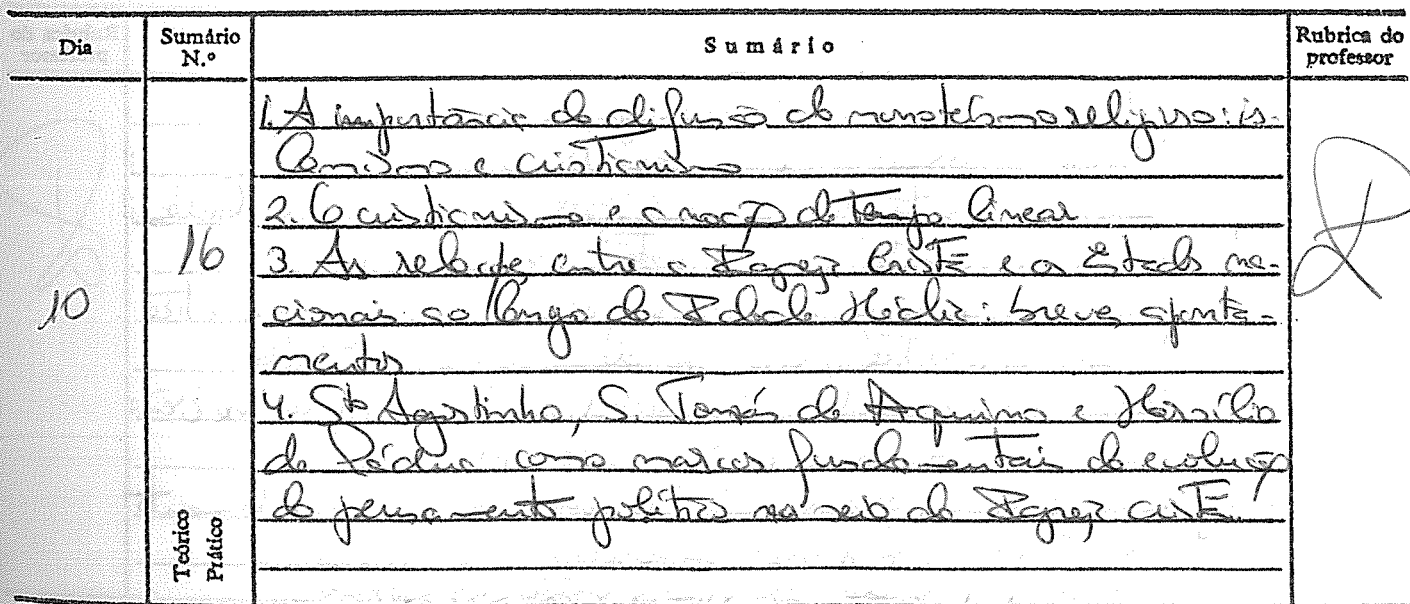 Dia
Sumário N.º
Sumário
Rubrica do professor
10
16
Teórico
Prático
1. A importância da difusão do monoteísmo religioso: is-
lamismo e cristianismo
2. O cristianismo e a noção de tempo linear
3 As relações entre a Igreja Cristã e os Estados na-
cionais ao longo da Idade Média: breves aponta-
mentos
4. Sto Agostinho, S. Tomás de Aquino e Marsílio
de Pádua como marcos fundamentais da evolução
do pensamento político no seio da Igreja cristã.